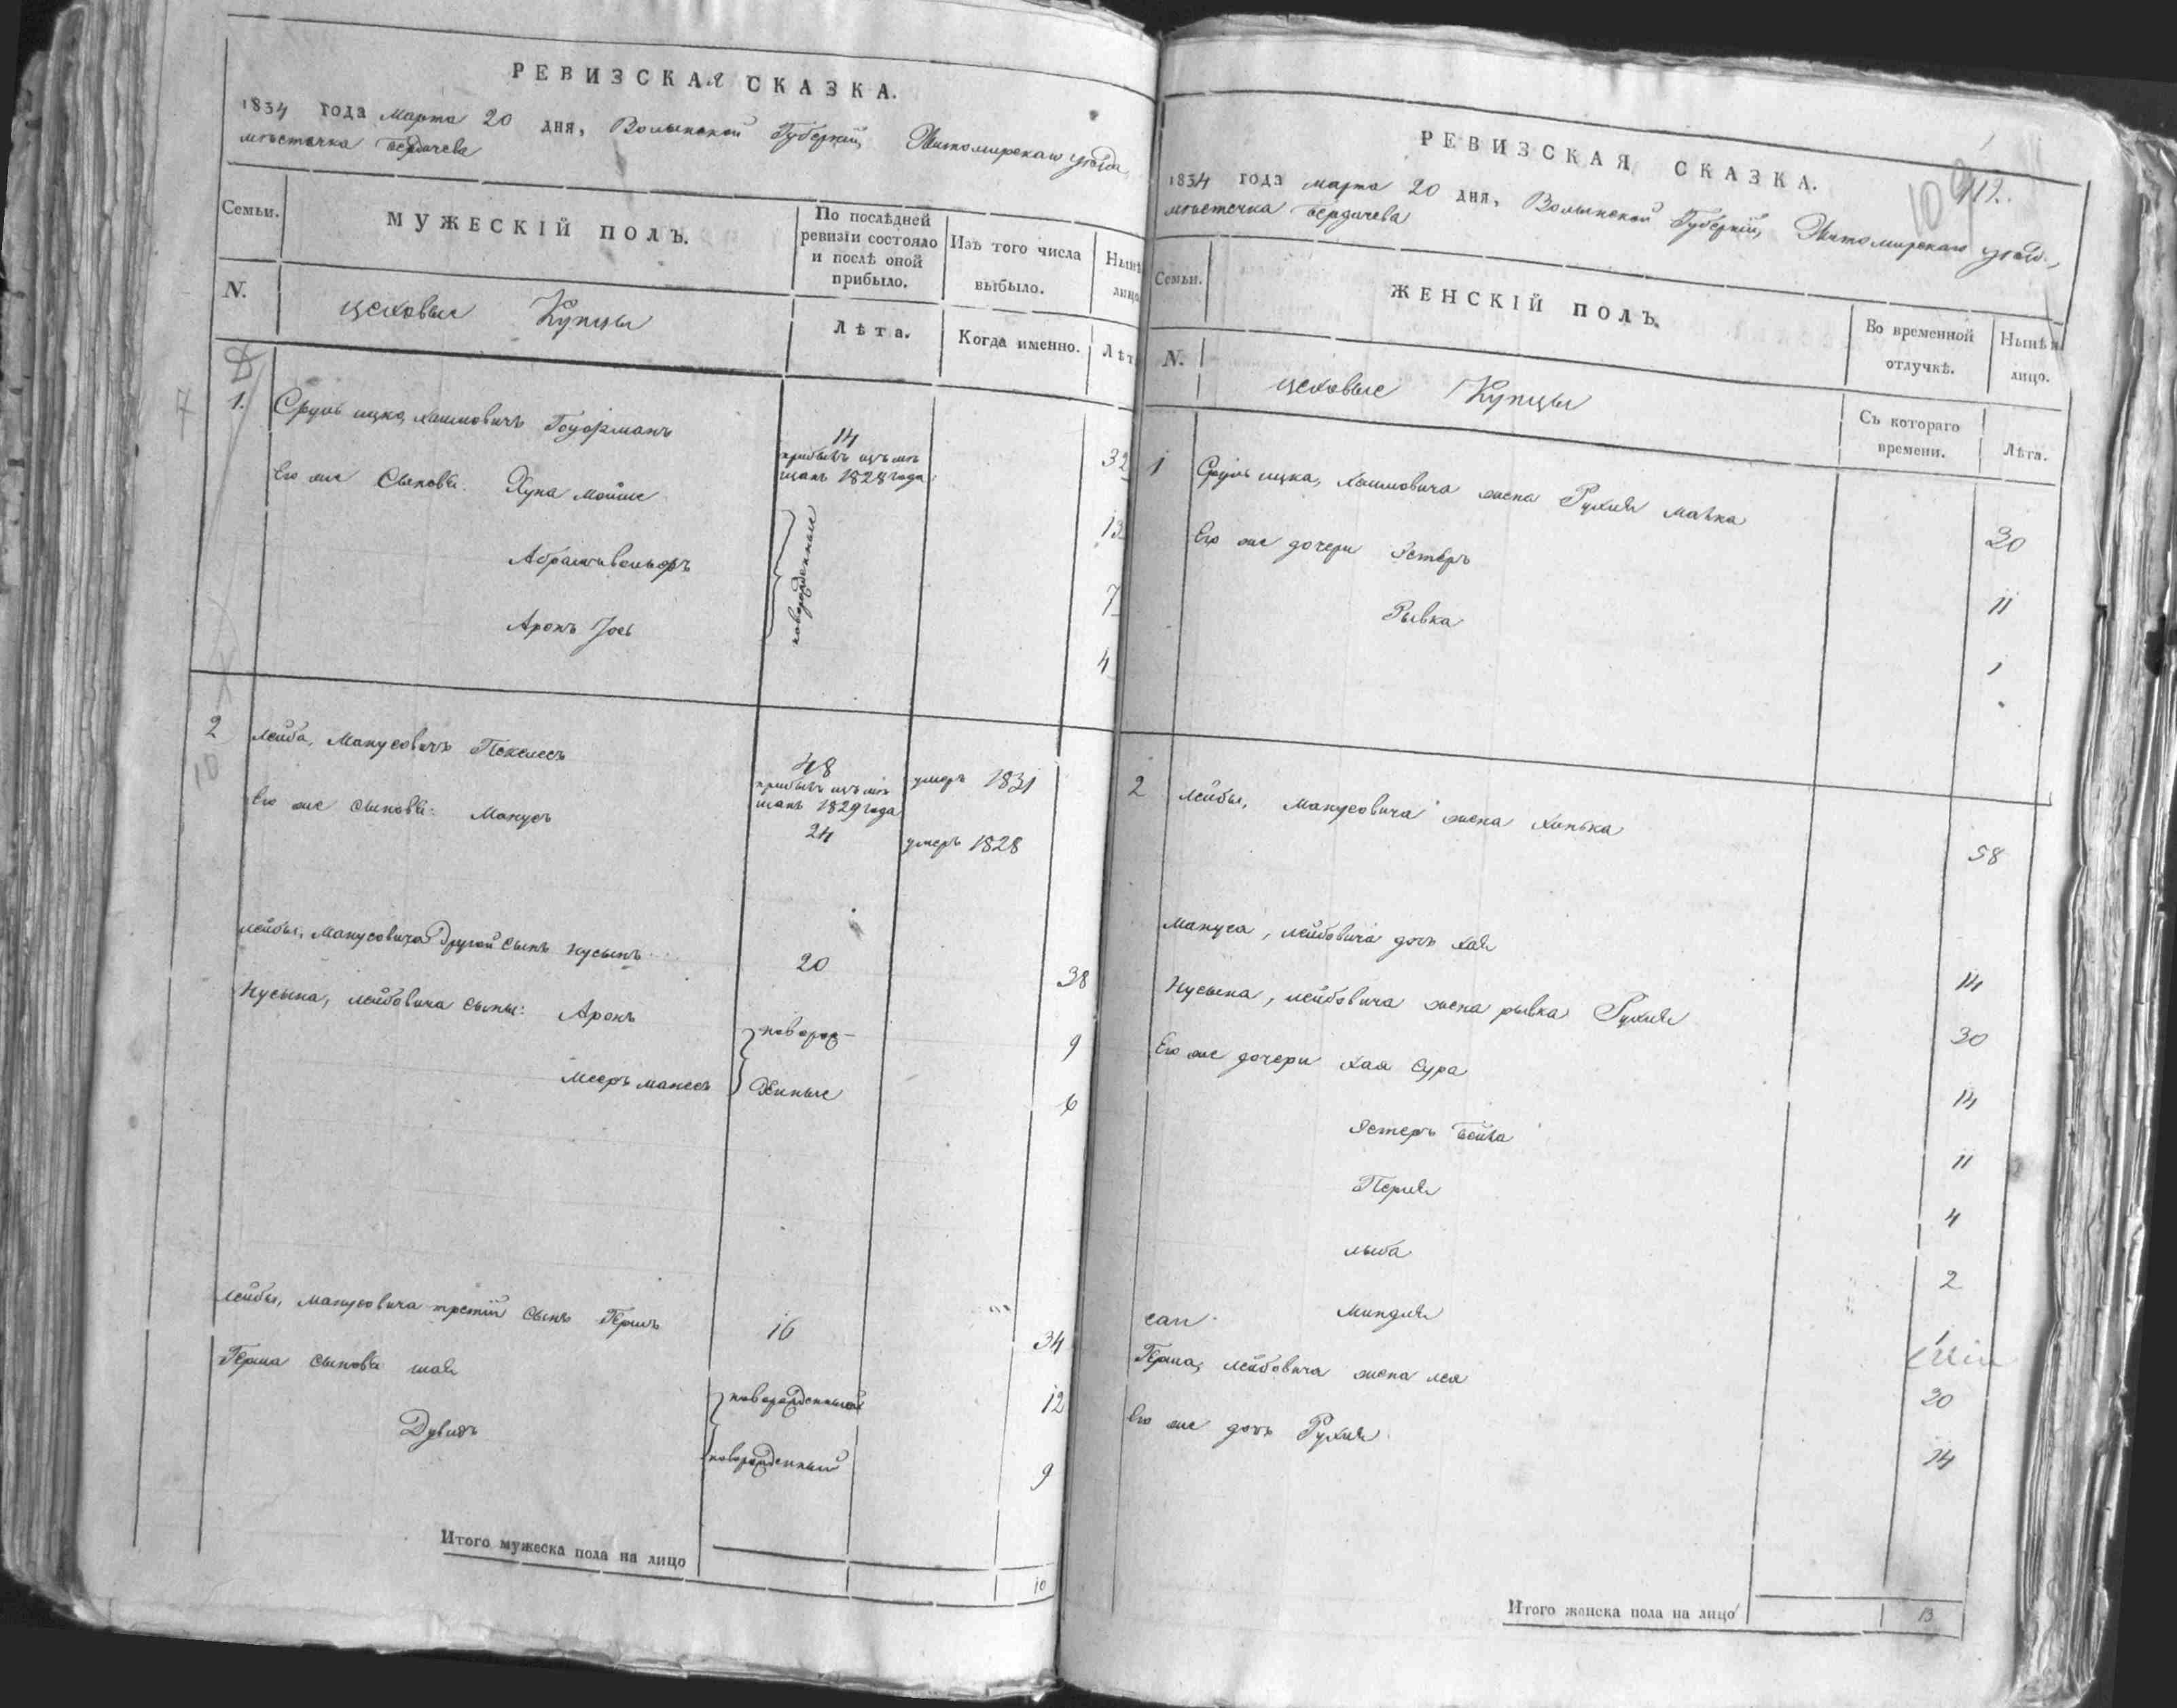 РЕВИЗСКАЯ СКАЗКА.
1834 года марта 20 дня, Волынской Губерніи, Житомирскаго уѣзда,
мѣстечка Бердичева
Семьи.
МУЖЕСКІЙ ПОЛЪ.
По послѣдней
ревизіи состояло
и послѣ оной
прибыло.
Изъ того числа
выбыло.
Нынѣ
лицо
N.
цеховые Купцы
Лѣта.
Когда именно.
Лѣт
7
1. Сруль ицко, хаимовичъ
14
прибылъ изъ мѣ
щанъ 1828 года
32
Его же сыновья: Хуна мойше
новорожденные
13
7
Аронъ Іось
4
2 Лейба, Манусовичъ Пекелесъ
48
прибылъ изъ мѣ
щанъ 1829 года
умеръ 1831
10
Его же сыновья: Манусъ
24
умеръ 1828
Лейбы, Манусовича Другой сынъ Нусынъ
20
38
Нусына, лейбовича сыны: Аронъ
новорож-
9
Мееръ манесъ
денные
6
Лейбы, манусовича третій сынъ Гершъ
16
34
Герша сыновья шая
новорожденный
12
Дувидъ
новорожденный
9
Итого мужеска пола на лицо
10
РЕВИЗСКАЯ СКАЗКА.
109 112.
1834 года марта 20 дня, Волынской Губерніи, Житомирскаго уѣзда,
мѣстечка Бердичева
Семьи.
ЖЕНСКІЙ ПОЛЪ.
Во временной
отлучкѣ.
Нынѣ н
лицо.
N.
цеховые Купцы
Съ котораго
времени.
Лѣта.
1 Сруль ицка, хаимовича жена Рухля малка
30
Его же дочери Эстеръ
11
Рывка
1
2 Лейбы, Манусовича жена ханька
58
Мануса, лейбовича дочь хая
14
Нусына, лейбовича жена рывка Рухля
30
Его же дочери хая сура
14
Эстеръ бейла
11
Перля
4
2
Миндля
1
Герша, лейбовича жена лея
30
Его же дочь Рухля
14
Итого женска пола на лицо
13